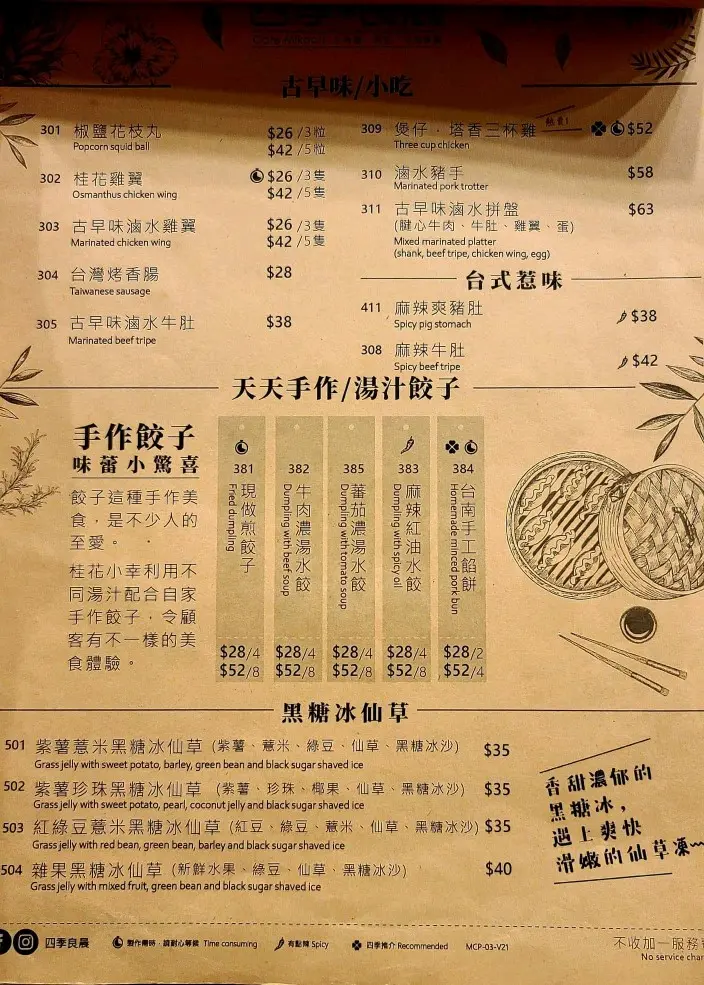 古早味/小吃
301 椒鹽花枝丸 $26 /3粒
Popcorn squid ball $42 /5粒
302 桂花雞翼 $26 /3隻
Osmanthus chicken wing $42 /5隻
303 古早味滷水雞翼 $26 /3隻
Marinated chicken wing $42 /5隻
304 台灣烤香腸 $28
Taiwanese sausage
305 古早味滷水牛肚 $38
Marinated beef tripe
309 煲仔．塔香三杯雞 $52
Three cup chicken
310 滷水豬手 $58
Marinated pork trotter
311 古早味滷水拼盤 $63
(腱心牛肉、牛肚、雞翼、蛋)
Mixed marinated platter
(shank, beef tripe, chicken wing, egg)
台式惹味
411 麻辣爽豬肚 $38
Spicy pig stomach
308 麻辣牛肚 $42
Spicy beef tripe
天天手作/湯汁餃子
手作餃子
味蕾小驚喜
餃子這種手作美
食，是不少人的
至愛。
桂花小幸利用不
同湯汁配合自家
手作餃子，令顧
客有不一樣的美
食體驗。
381
現做煎餃子
Fried dumpling
$28/4
$52/8
382
牛肉濃湯水餃
Dumpling with beef soup
$28/4
$52/8
385
蕃茄濃湯水餃
Dumpling with tomato soup
$28/4
$52/8
383
麻辣紅油水餃
Dumping with spicy oil
$28/4
$52/8
384
台南手工餡餅
Homemade minced pork bun
$28/2
$52/4
黑糖冰仙草
501 紫薯薏米黑糖冰仙草 (紫薯、薏米、綠豆、仙草、黑糖冰沙) $35
Grass jelly with sweet potato, barley, green bean and black sugar shaved ice
502 紫薯珍珠黑糖冰仙草 (紫薯、珍珠、椰果、仙草、黑糖冰沙) $35
Grass jelly with sweet potato, pearl, coconut jelly and black sugar shaved ice
503 紅綠豆薏米黑糖冰仙草 (紅豆、綠豆、薏米、仙草、黑糖冰沙) $35
Grass jelly with red bean, green bean, barley and black sugar shaved ice
504 雜果黑糖冰仙草 (新鮮水果、綠豆、仙草、黑糖冰沙) $40
Grass jelly with mixed fruit, green bean and black sugar shaved ice
香甜濃郁的
黑糖冰，
遇上爽快
滑嫩的仙草凍~
四季良晨 製作需時，請耐心等候 Time consuming 有點辣 Spicy 四季推介 Recommended MCP-03-V21
不收加一服務
No service char